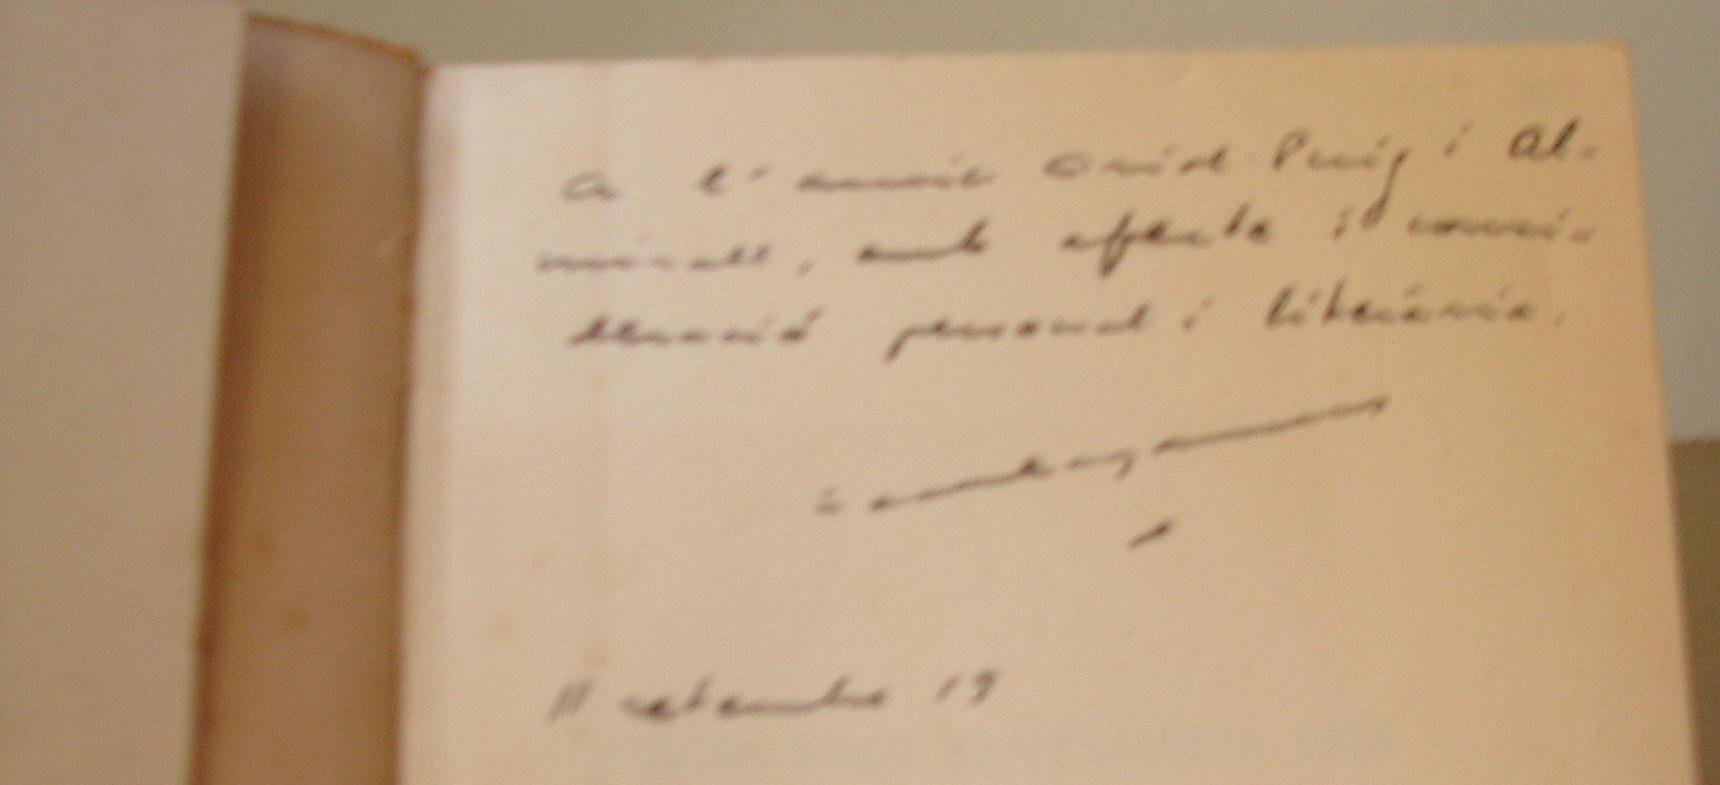 A l'amic Oriol Puig i Al-
mirall, amb afecte i consi-
deració personal i literària.
11 setembre 19